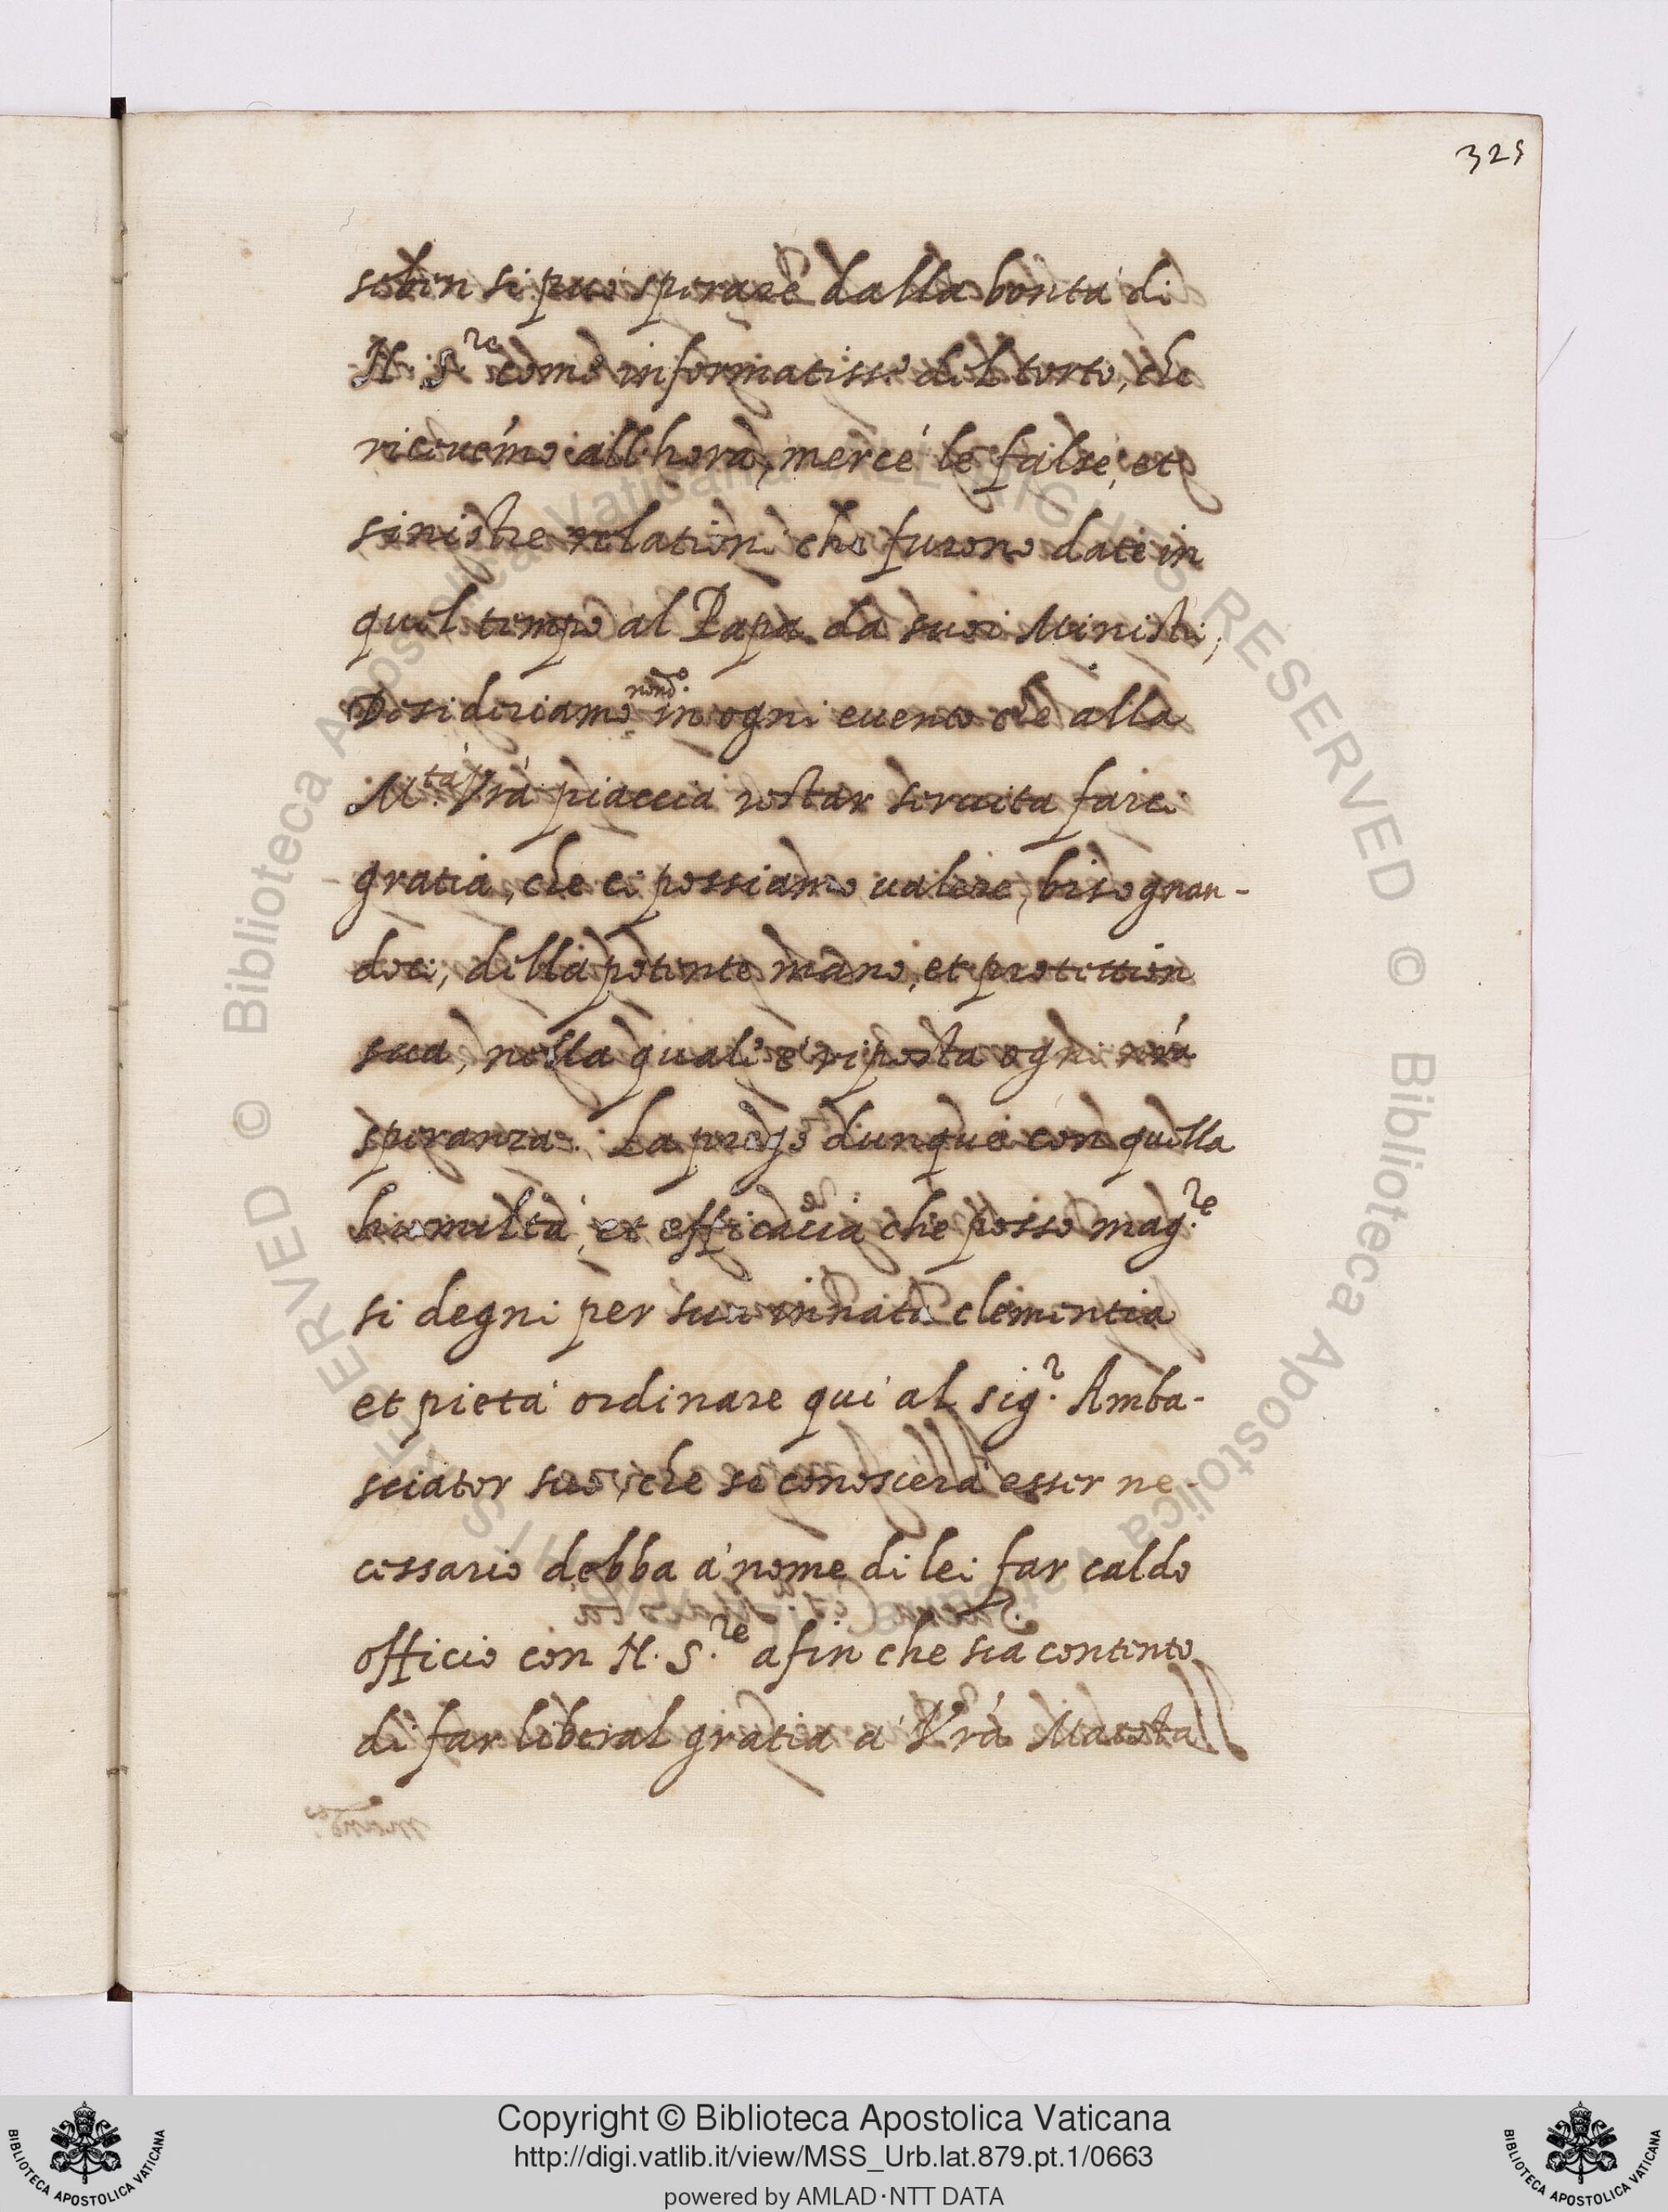 325
sebin si può sperare dalla bontà di
N. S.re come informatiss.o del torto, che
riceuemo all'hora, mercé le false, et
sinistre relationi che furono date in
quel tempo al Papa da suoi Ministri,
Desideriamo nond.o in ogni euento che alla
M.tà Vrà piaccia restar seruita farci
gratia, che ci possiamo ualere, bisognan-
doci, della potente mano, et protettion
sua, nella quale è riposta ogni nrà
speranza. La prego dunque con quella
humiltà, et efficacia che posso mag.re
si degni per sua innata clementia
et pietà ordinare quì al sig.r Amba-
sciator suo, che se conoscerà esser ne-
cessario debba à nome di lei far caldo
officio con N. S.re afin che sia contento
di far liberal gratia à Vrà Maestà
© Biblioteca Apostolica Vaticana ALL RIGHTS RESERVED © Biblioteca Apostolica Vaticana ALL RIGHTS RESERVED
Copyright © Biblioteca Apostolica Vaticana
http://digi.vatlib.it/view/MSS_Urb.lat.879.pt.1/0663
powered by AMLAD·NTT DATA
BIBLIOTECA APOSTOLICA VATICANA
BIBLIOTECA APOSTOLICA VATICANA